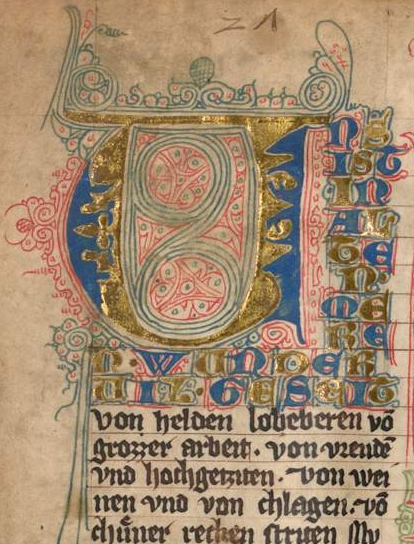 21
UNS
IST
IN
AL
TE
N
ME
RE
N · WUNDER
UIL GESAIT
von helden lobeberen võ
grozzer arbeit · von vreudē
vnd hochgeziten · von wei
nen vnd von chlagen · võ
chůner recken striten